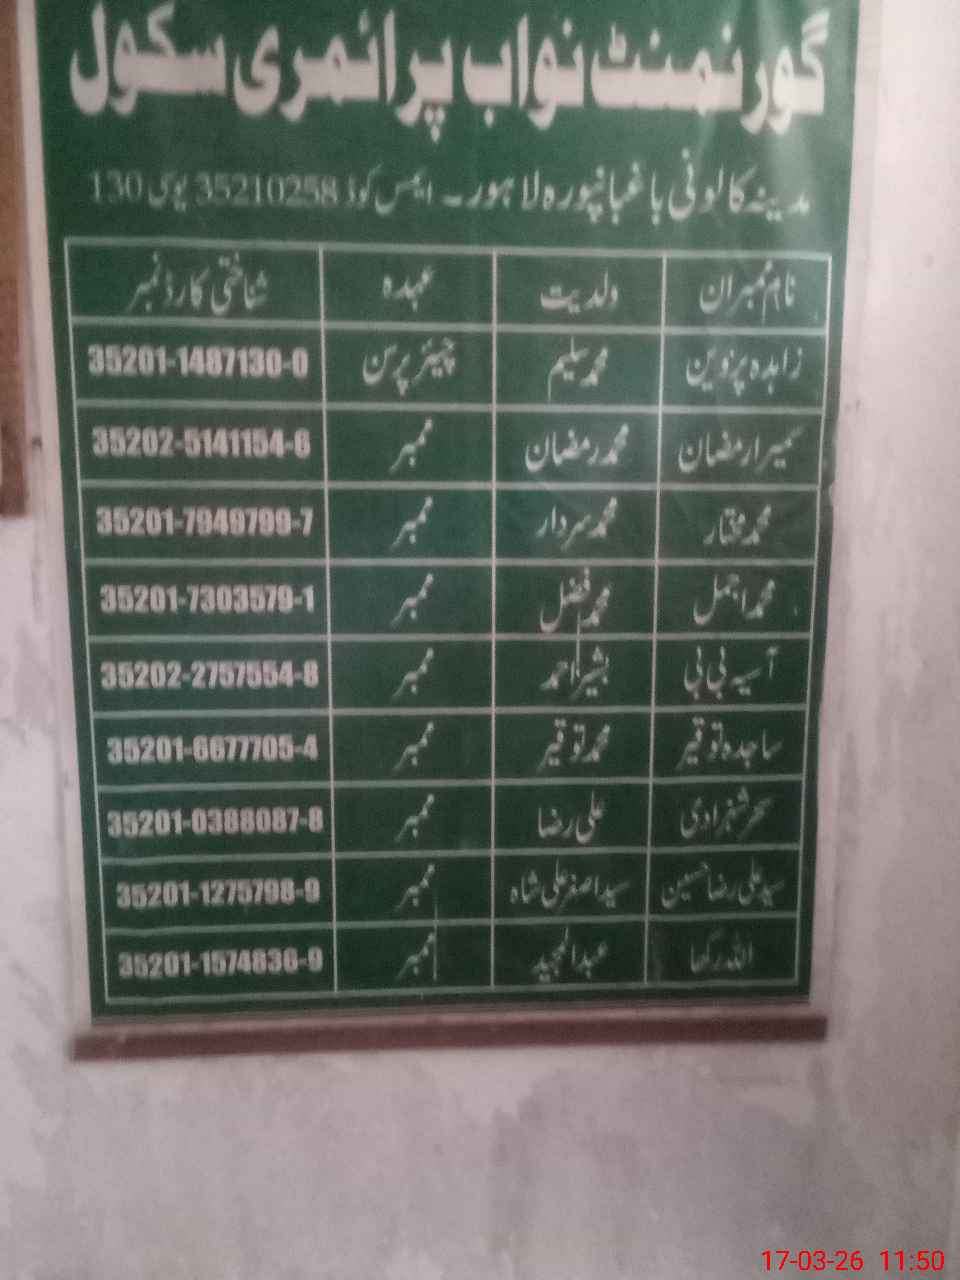 گورنمنٹ نواب پرائمری سکول
مدینہ کالونی باغبانپورہ لاہور۔ ایمس کوڈ 35210258 یوسی 130
نام ممبران ولدیت عہدہ شناختی کارڈ نمبر
زاہدہ پروین محمد سلیم چیئر پرسن 35201-1487130-0
سمیرا رمضان محمد رمضان ممبر 35202-5141154-6
محمد مختار محمد سردار ممبر 35201-7949799-7
محمد اجمل محمد فضل ممبر 35201-7303579-1
آسیہ بی بی بشیر احمد ممبر 35202-2757554-8
ساجدہ توقیر محمد توقیر ممبر 35201-6677705-4
سحر شہزادی علی رضا ممبر 35201-0388087-8
سید علی رضا حسین سید اصغر علی شاہ ممبر 35201-1275798-9
اللہ رکھا عبدالمجید ممبر 35201-1574836-9
17-03-26 11:50